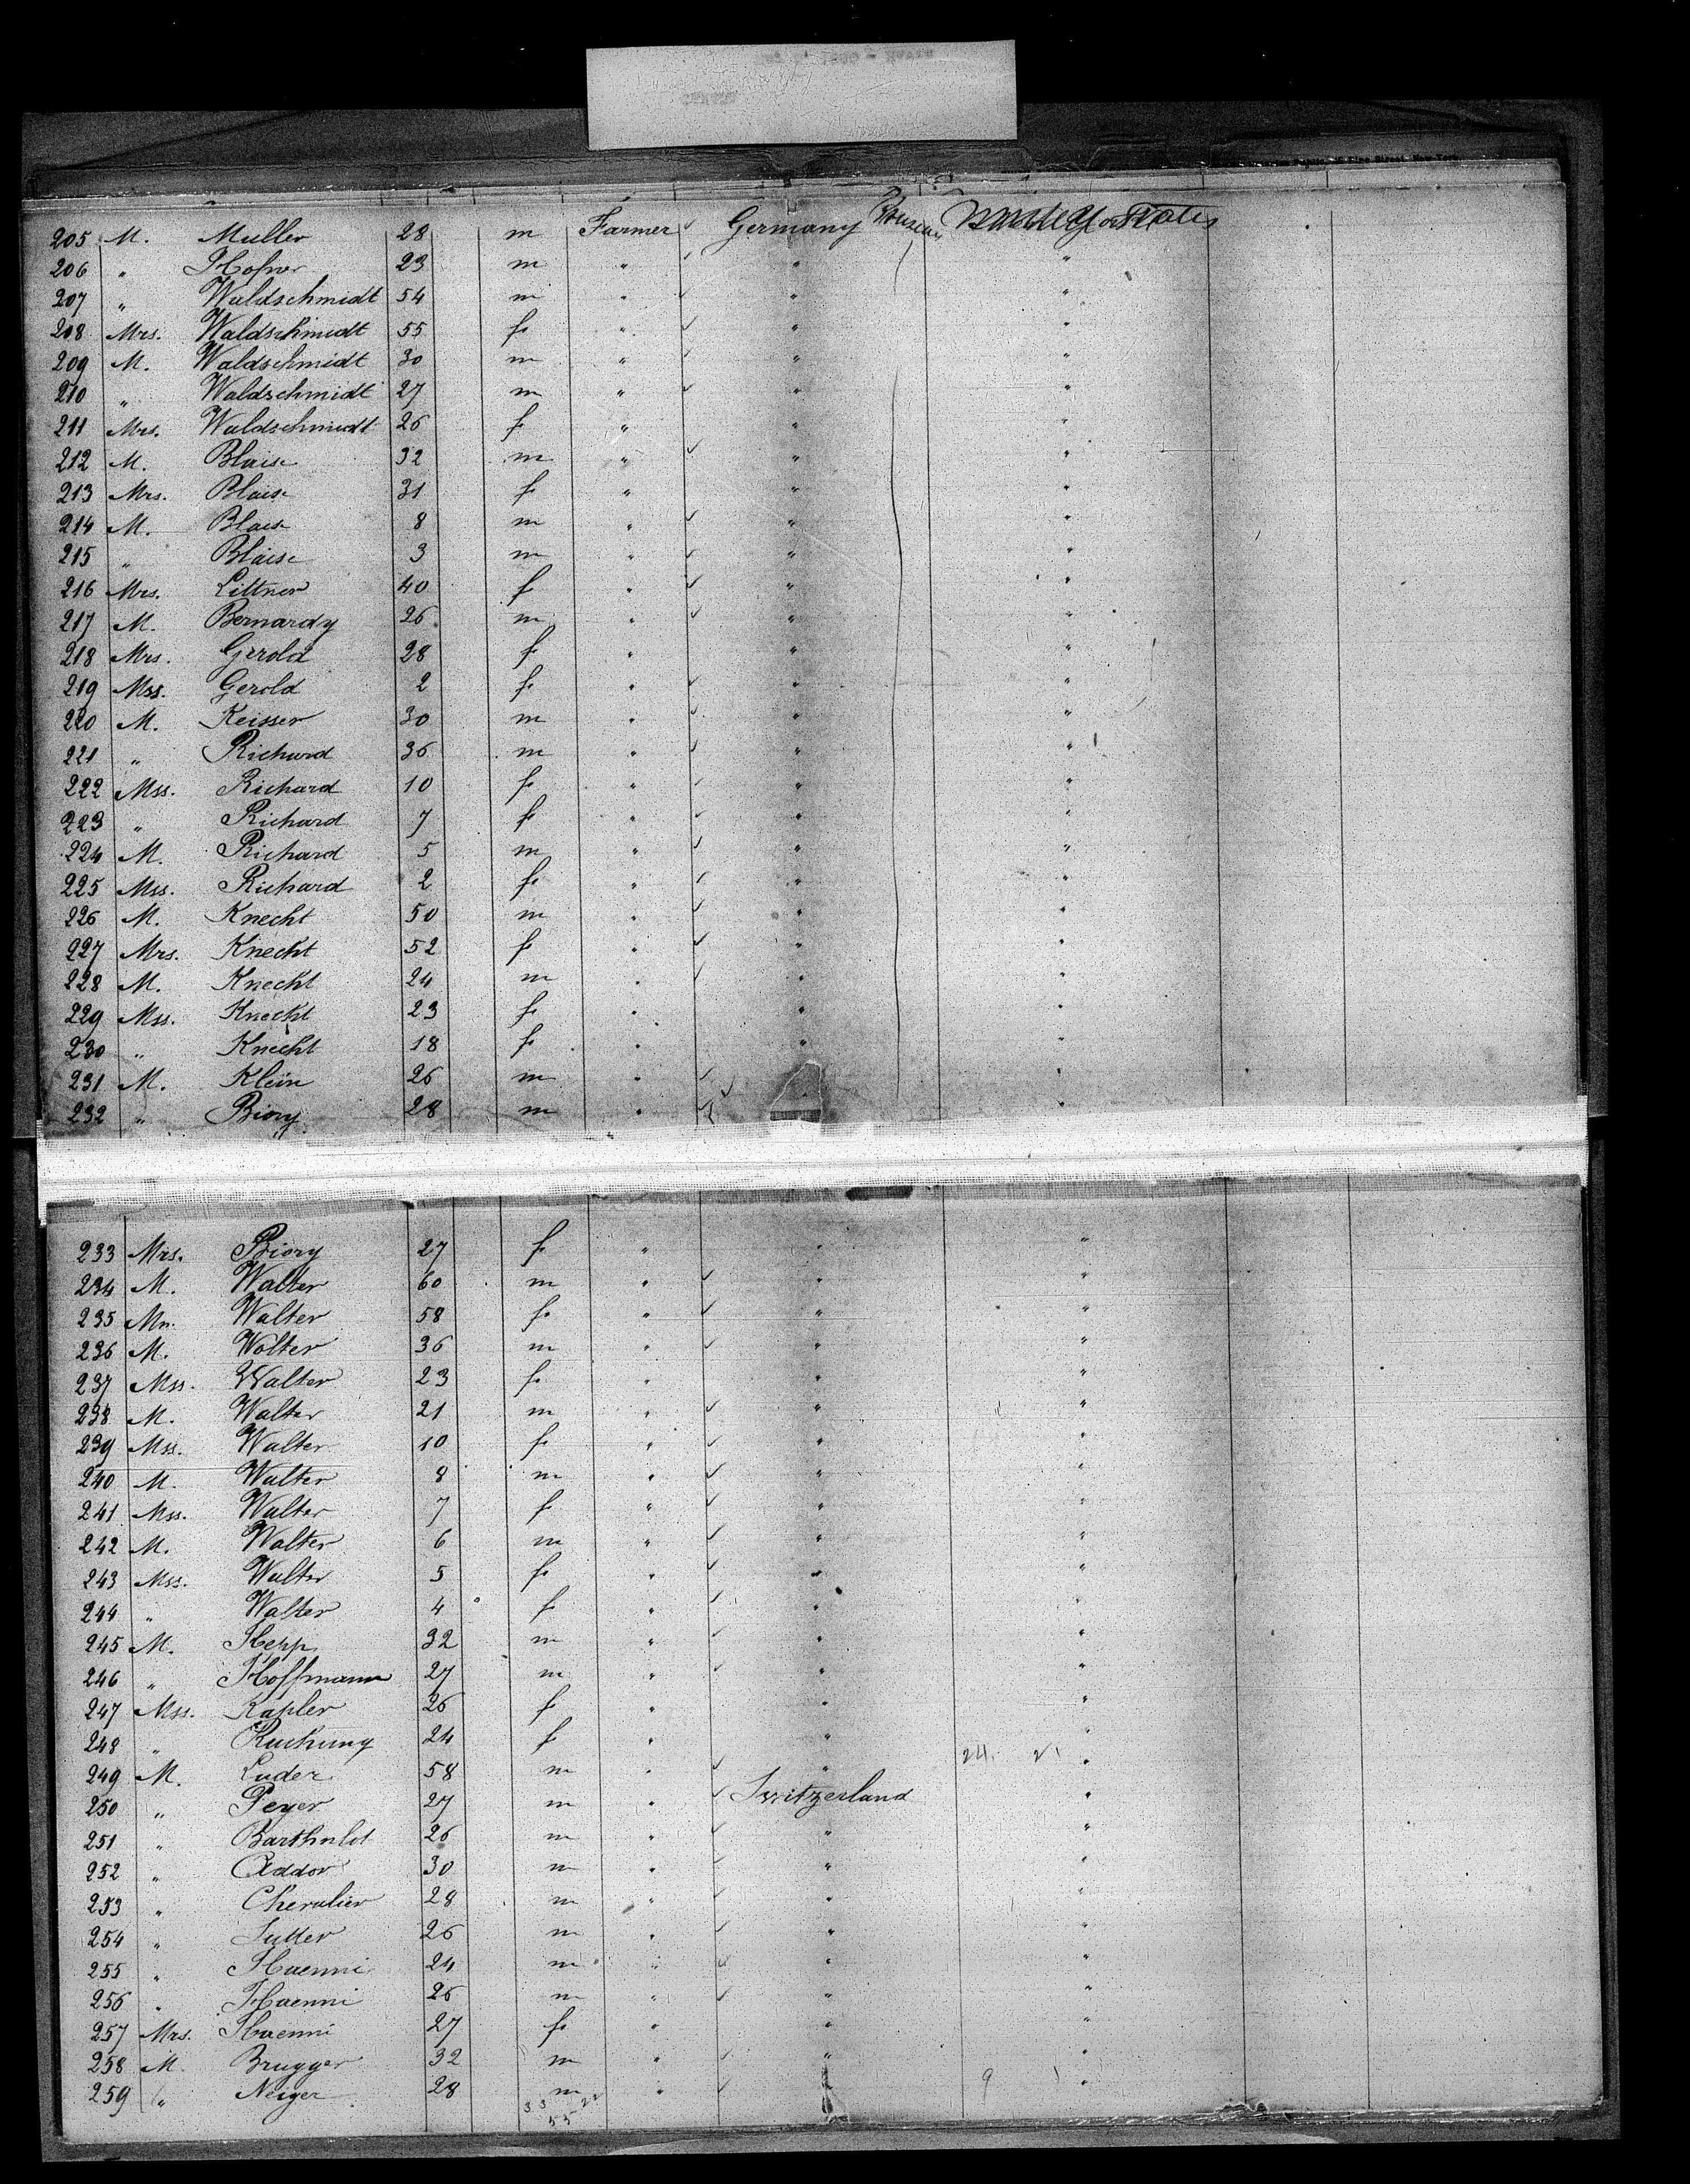 205 M. Muller 28 m Farmer Germany United States
206 " Hofner 23 m " " "
207 " Waldschmidt 54 m " " "
208 Mrs. Waldschmidt 55 f " " "
209 M. Waldschmidt 30 m " " "
210 " Waldschmidt 27 m " " "
211 Mrs. Waldschmidt 26 f " " "
212 M. Blaise 32 m " " "
213 Mrs. Blaise 31 f " " "
214 M. Blaise 8 m " " "
215 " Blaise 3 m " " "
216 Mrs. Littner 40 f " " "
217 M. Bernardy 26 m " " "
218 Mrs. Gerold 28 f " " "
219 Mss. Gerold 2 f " " "
220 M. Keisser 30 m " " "
221 " Richard 36 m " " "
222 Mss. Richard 10 f " " "
223 " Richard 7 f " " "
224 M. Richard 5 m " " "
225 Mss. Richard 2 f " " "
226 M. Knecht 50 m " " "
227 Mrs. Knecht 52 f " " "
228 M. Knecht 24 m " " "
229 Mss. Knecht 23 f " " "
230 " Knecht 18 f " " "
231 M. Klein 26 m " " "
232 " Biory 28 m " "
233 Mrs. Biory 27 f " " "
234 M. Walter 60 m " " "
235 Mrs. Walter 58 f " " "
236 M. Walter 36 m " " "
237 Mss. Walter 23 f " " "
238 M. Walter 21 m " " "
239 Mss. Walter 10 f " " "
240 M. Walter 8 m " " "
241 Mss. Walter 7 f " " "
242 M. Walter 6 m " " "
243 Mss. Walter 5 f " " "
244 " Walter 4 f " " "
245 M. Hepp 32 m " " "
246 " Hoffmann 27 m " " "
247 Mss. Kapler 26 f " " "
248 " 24 f " " "
249 M. Luder 58 m " " "
250 " Peyer 27 m " Switzerland "
251 " Bartholdt 26 m " " "
252 " Addor 30 m " " "
253 " Chevalier 28 m " " "
254 " Sutter 26 m " " "
255 " Huenni 24 m " " "
256 " Huenni 26 m " " "
257 Mrs. Huenni 27 f " " "
258 M. Brugger 32 m " " "
259 " Neiger 28 m " " 9 "
33 22
55